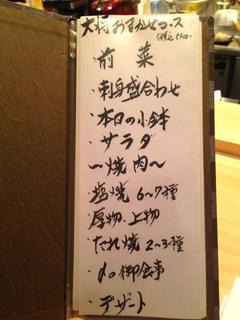 大将おまかせコース
・前菜
・刺身盛合わせ
・本日の小鉢
・サラダ
〜焼肉〜
・塩焼 6〜7種
厚物、上物
・たれ焼 2〜3種
・〆の御食事
・デザート